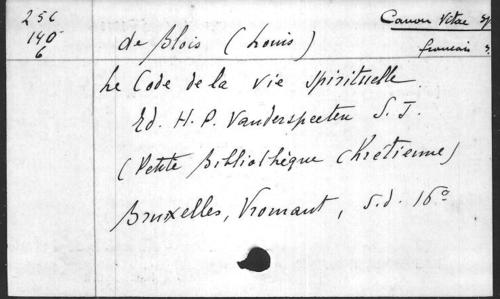 256
140
6
Canon Vitae sp
francais s
de Blois (Louis)
Le Code de la vie spirituelle
Ed. H. P. Vanderspeeten S. J.
(Petite Bibliothèque Chrétienne)
Bruxelles, Vromant, s.d. 16°